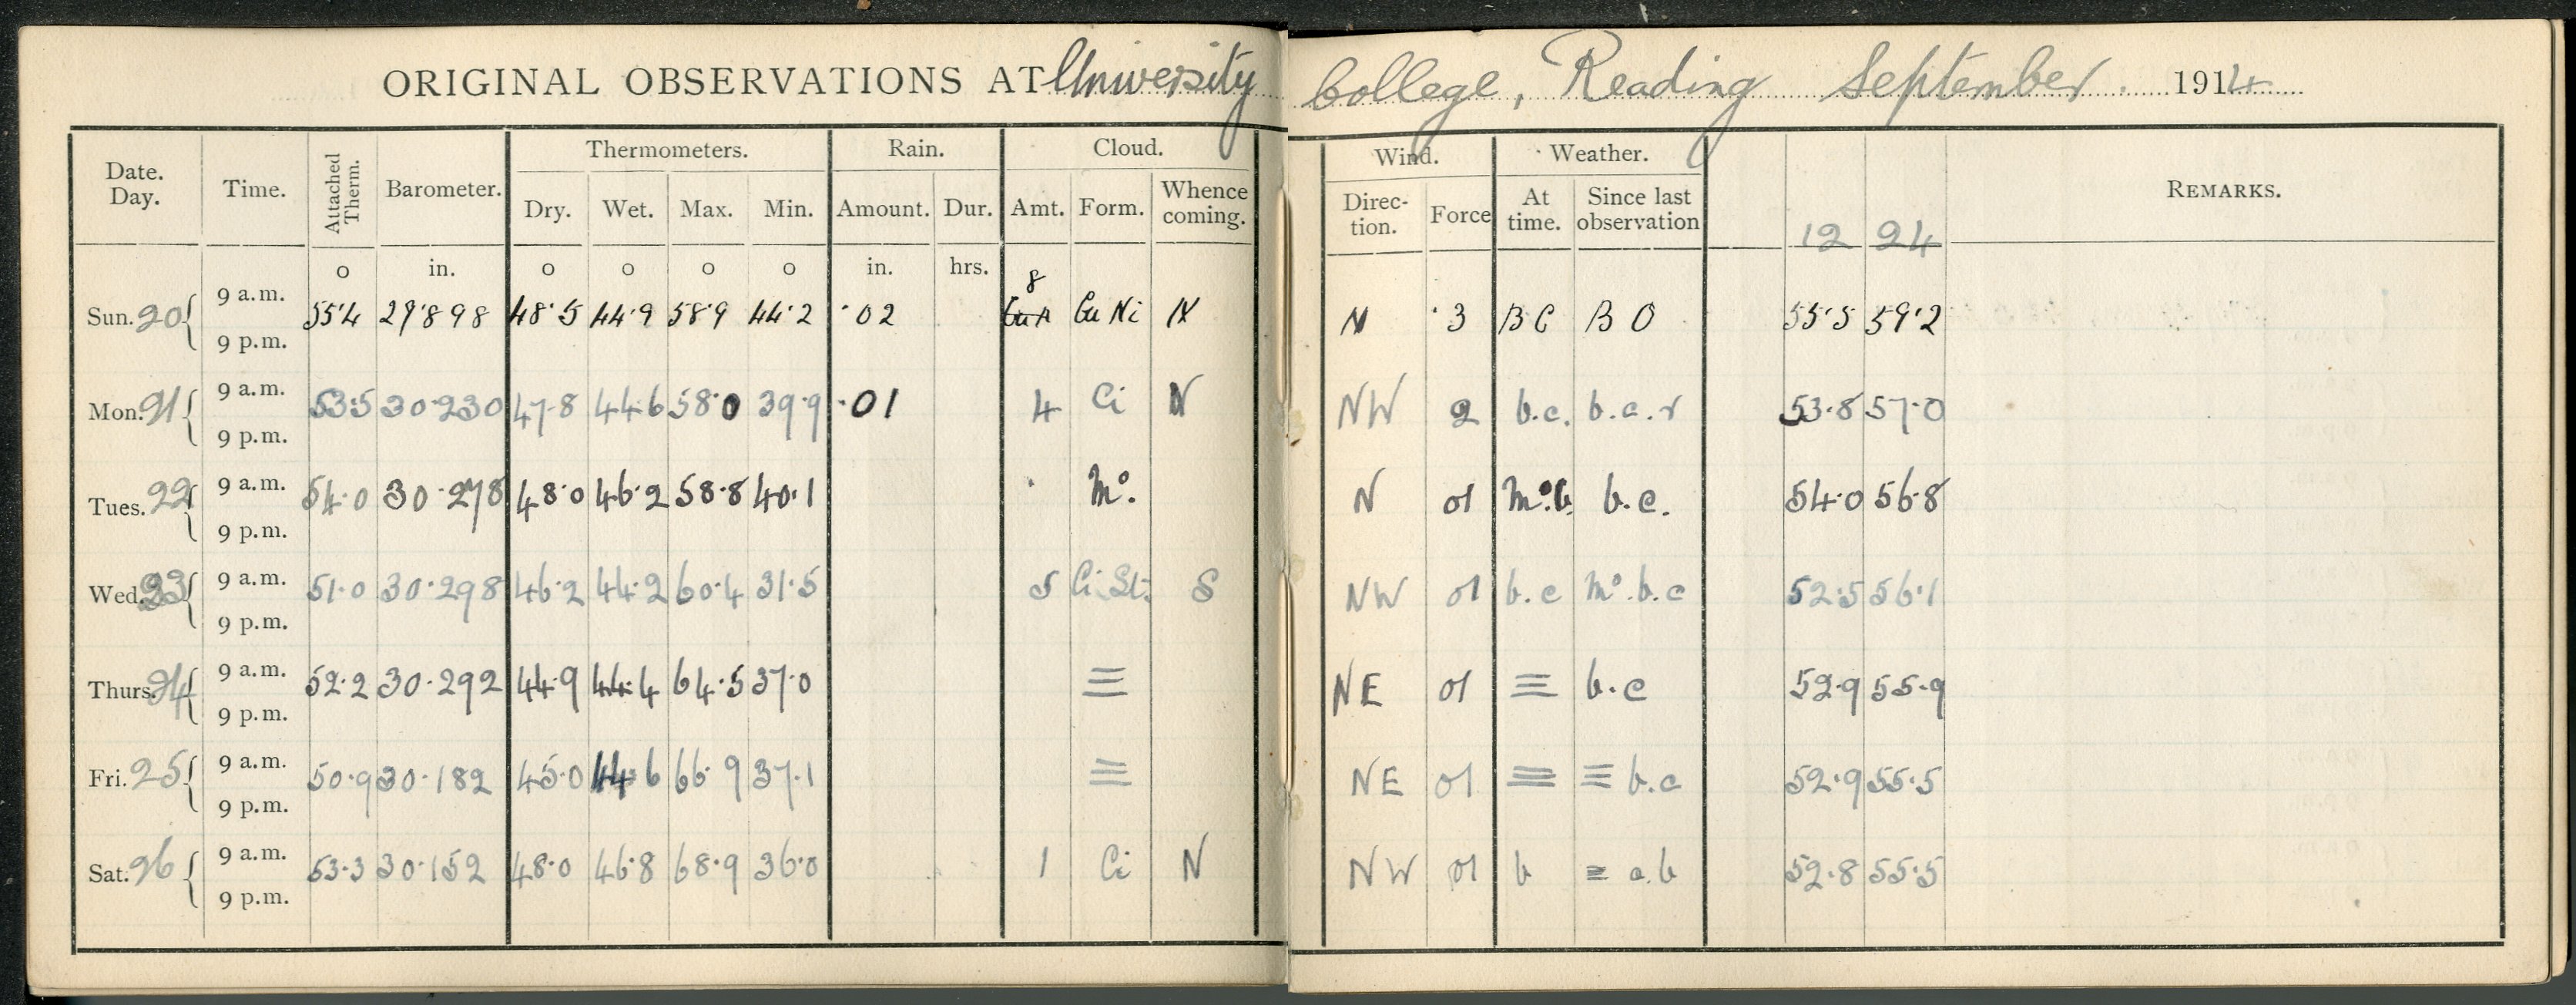 ORIGINAL OBSERVATIONS AT University College, Reading September 1914
Thermometers. Rain. Cloud. Wind. Weather.
Date. Day. Time. Attached Therm. Barometer. Dry. Wet. Max. Min. Amount. Dur. Amt. Form. Whence coming. Direc-tion. Force At time. Since last observation 12 24 REMARKS.
o in. o o o o in. hrs.
8
Sun. 20 9 a.m. 55.4 29.898 48.5 44.9 58.9 44.2 .02 Cu Ni N N .3 B C B O 55.5 59.2
9 p.m.
Mon. 21 9 a.m. 53.5 30.230 47.8 44.6 58.0 39.9 .01 4 Ci N NW 2 b.c. b.c.r 53.8 57.0
9 p.m.
Tues. 22 9 a.m. 54.0 30.278 48.0 46.2 58.8 40.1 m°. N 01 m°.b. b.c. 54.0 56.8
9 p.m.
Wed. 23 9 a.m. 51.0 30.298 46.2 44.2 60.4 31.5 5 Ci.St. S NW 01 b.c m°.b.c 52.5 56.1
9 p.m.
Thurs. 24 9 a.m. 52.2 30.292 44.9 44.4 64.5 37.0 ≡ NE 01 ≡ b.c 52.9 55.9
9 p.m.
Fri. 25 9 a.m. 50.9 30.182 45.0 44.6 66.9 37.1 ≡ NE 01 ≡ ≡ b.c 52.9 55.5
9 p.m.
Sat. 26 9 a.m. 53.3 30.152 48.0 46.8 68.9 36.0 1 Ci N NW 01 b ≡ c.b 52.8 55.5
9 p.m.